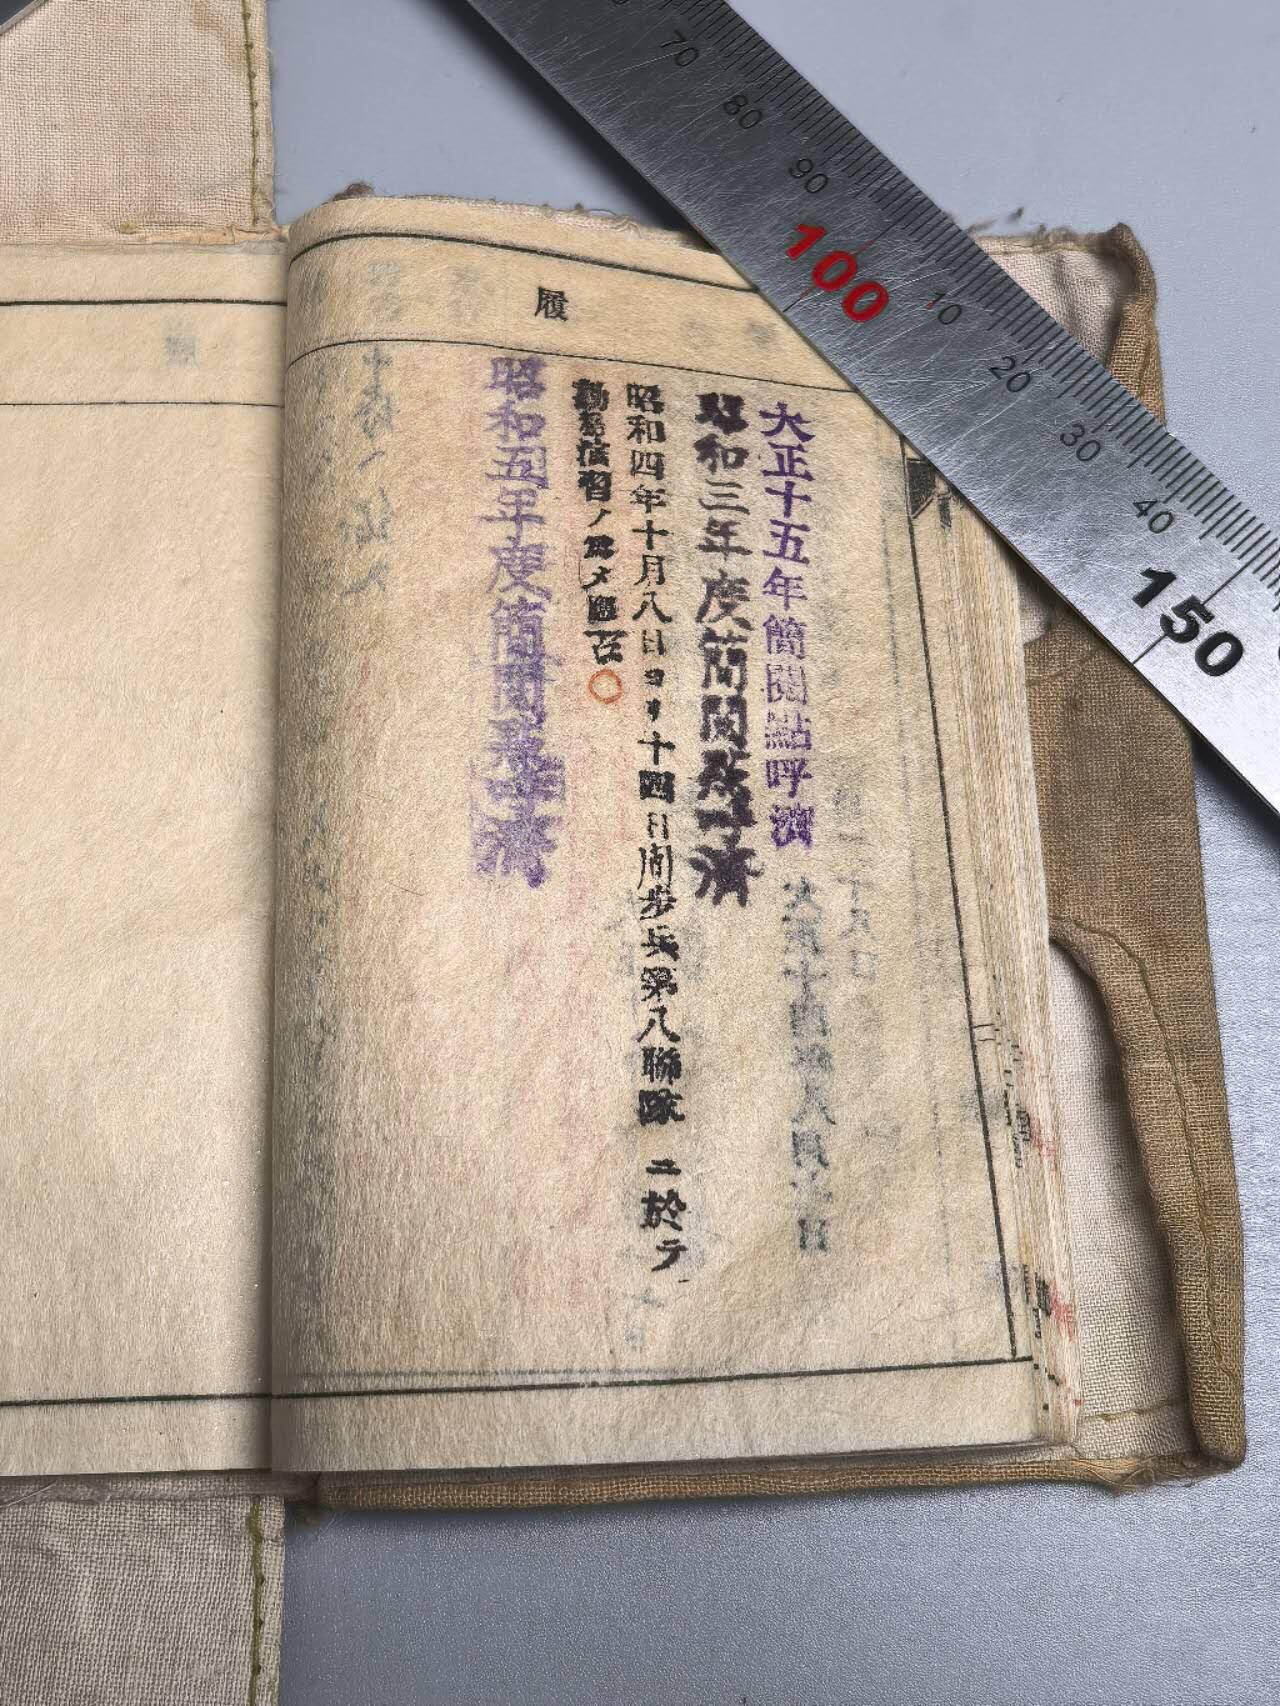 履
大正十五年簡閲點呼濟
昭和三年度簡閲点呼濟
昭和四年十月八日ヨリ十四日間歩兵第八聯隊ニ於テ
勤務演習ノ為メ應召
昭和五年度簡閲点呼濟
70
80
90
100
10
20
30
40
150